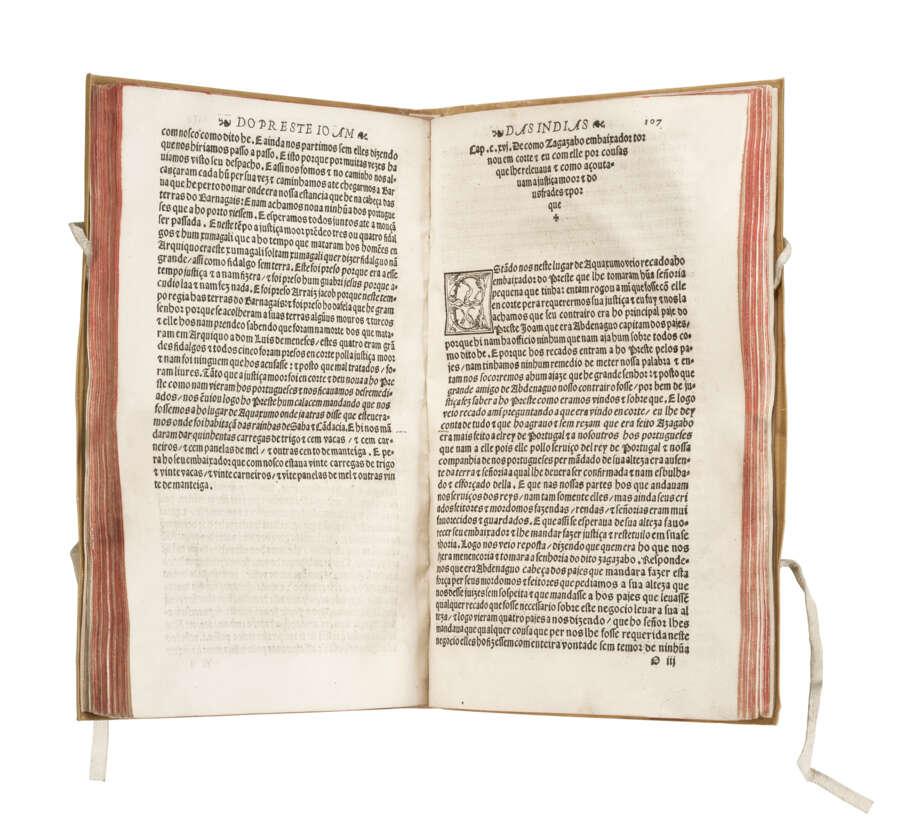 DO PRESTE IOAM
com nosco como dito he. E ainda nos partimos sem elles dizendo
que nos hiriamos passo a passo. E isto porque por muitas vezes ha
uiamos visto seu despacho. E assi nos fomos τ no caminho nos al-
cançaram cada hũ per sua vez τ caminhamos ate chegarmos a Bar
ua que he perto do mar onde era nossa estancia que he na cabeça das
terras do Barnagais: E nam achamos noua ninhũa dos portugue
ses que a ho porto viessem. E esperamos todos juntos ate a mouçã
ser passada. E neste tẽpo a justiça moor prẽdeo tres ou quatro fidal
gos τ hum xumagali que a ho tempo que mataram hos homẽes en
Arquiquo era este xumagali soltam xumagali quer dizer fidalguo nã
grande/ assi como fidalgo sem terra. Este foi preso porque era a esse
tempo justiça τ a nam fizera/ τ foi preso hum guabri jesus porque a-
cudio laa τ nam fez nada. E foi preso Arraiz jacob porque neste tem-
po regia has terras do Barnagais: τ foi preso ho dafela que he gram
senhor porque se acolheram a suas terras algũus mouros τ turcos
τ elle hos nam prendeo sabendo que foram na morte dos que mata-
ram em Arquiquo a dom Luis de meneses/ estes quatro eram grã
des fidalgos τ todos cinco foram presos en corte polla justiça moor
τ nam foi ninguem que hos acusasse: τ posto que mal tratados/ fo-
ram liures. Tãto que a justiça moor foi en corte τ deu noua a ho Pre
ste como nam vieram hos portugueses τ nos ficauamos desremedi-
ados/ nos ẽuiou logo ho Preste hum calacem mandando que nos
fossemos a ho lugar de Aquaxumo onde ja atras disse que esteuera-
mos onde foi habitaçã das rainhas de Saba τ Cãdacia. E hi nos mã
daram dar quinhentas carregas de trigo τ cem vacas/ τ cem car-
neiros/ τ cem panelas de mel/ τ outras cento de manteiga. E pe-
ra ho seu embaixador que com nosco estaua vinte carregas de trigo
τ vinte vacas/ τ vinte carneiros/ τ vĩte panelas de mel τ outras vin
te de manteiga.
DAS INDIAS 107
Cap. c. xvj. De como Zagazabo embaixador tor
nou em corte τ eu com elle por cousas
que lhe releuaua τ como açouta-
uam a justiça moor τ do
us frades τ por
que
EStãdo nos neste lugar de Aquaxumo veio recado a ho
embaixador do Preste que lhe tomaram hũa señoria
pequena que tinha: entam rogou a mi que fosse cõ elle
en corte pera requerermos sua justiça τ eu fuy τ nos la
achamos que seu contrairo era ho principal paje do
Preste Joam que era Abdenaguo capitam dos pajes/
porque hi nam ha officio ninhum que nam aja hum sobre todos co-
mo dito he. E porque hos recados entram a ho Preste pelos pa-
jes/ nam tinhamos ninhum remedio de meter nossa palabra τ en-
tam nos socorremos a hum ajaze que he grande senhor: τ posto que
grande amigo de Abdenaguo nosso contrairo fosse/ por bem de ju-
stiça fez saber a ho Preste como eramos vindos τ sobre que. E logo
veio recado a mi preguntando a que era vindo en corte/ eu lhe dey
conta de tudo τ que ho agrauo τ sem rezam que era feito A zagabo
era mais feito a el rey de Portugal τ a nos outros hos portugueses
que nam a elle pois elle pollo seruiço del rey de Portugal τ nossa
companhia de nos portugueses per mãdado de sua alteza era ausen-
te da terra τ señoria a qual lhe deuera ser confirmada τ nam esbulha-
do τ esforçado della. E que nas nossas partes hos que andauam
nos seruiços dos reys/ nam tam somente elles/ mas ainda seus cri
ados feitores τ mordomos fazendas/ rendas/ τ señorias eram mui
fauorecidos τ guardados. E que assi se esperaua de sua alteza fauo-
recer seu embaixador τ lhe mandar fazer justiça τ restetuilo em sua se
ñoria. Logo nos veio reposta/ dizendo que quem era ho que nos
fizera menencoria τ tomara a senhoria do dito zagazabo. Responde-
nos que era Abdenaguo cabeça dos pajes que mandara fazer esta
força per seus mordomos τ feitores que pediamos a sua alteza que
nos desse juizes sem sospeita τ que mandasse a hos pajes que leuassẽ
qualquer recado que fosse necessario sobre este negocio leuar a sua al
teza/ τ logo vieram quatro pajes a nos dizendo/ que ho señor lhes
mandaua que qualquer cousa que per nos lhe fosse requerida neste
negocio elles ho fizessem com enteira vontade sem temor de ninhũa
O iij